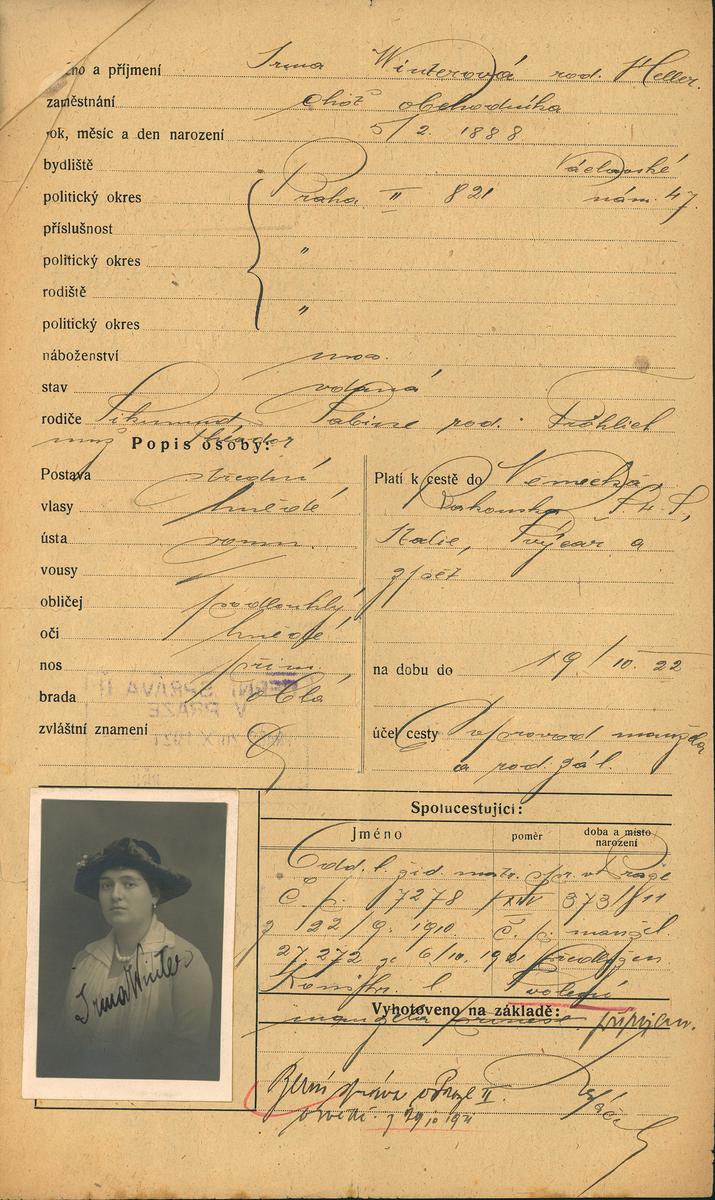 no a příjmení Irma Winterová rod. Heller.
zaměstnání choť obchodníka
rok, měsíc a den narození 5/2. 1888
bydliště Václavské
politický okres Praha II 821 nám. 47.
příslušnost
politický okres "
rodiště
politický okres "
náboženství mos.
stav vdaná
rodiče Sikmund Sabine rod. Fröhlich
Popis osoby:
Postava střední
vlasy hnědé
ústa norm.
vousy
obličej podlouhlý
oči hnědé
nos přím.
brada oblá
zvláštní znamení
Platí k cestě do Německa,
Rakouska,
Italie, Švýcar a
zpět
na dobu do 19/10. 22
účel cesty doprovod manžela
a rod. zál.
BERNÍ SPRÁVA II
V PRAZE
Irma Winter
Spolucestující:
Jméno poměr doba a místo narození
Odd. l. žid. matr. v Praze
Č. p. 7278 373/811
z 22/9. 1910. Č. p. manžel
27.272 ze 6/10. 1921
Konskr. l. Povolení
Vyhotoveno na základě:
manžela přípojen.
Berní správa v Praze II.
29/10 1921